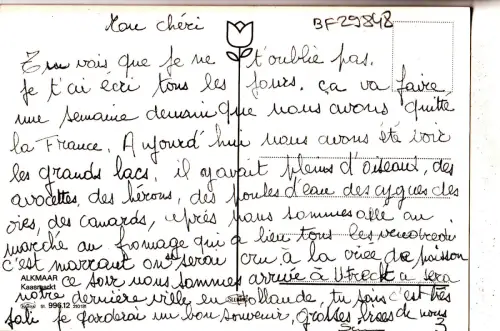 Mon chéri
BF29848
Tu vois que je ne t'oublie pas.
je t'ai écri tous les jours. ça va faire
une semaine demain que nous avons quitté
la France. Aujourd'hui nous avons été voir
les grands lacs. il y avait pleins d'oiseaux, des
avocettes, des hérons, des poules d'eau des cygnes des
oies, des canards, après nous sommes allé au
marché au fromage qui a lieu tous les vendredis
c'est marrant on serai cru à la criée de poisson
ALKMAAR
Kaasmarkt
ce soir nous sommes arrivée à Utrecht sera
notre dernière ville en Hollande, tu sais c'est très
996.12
joli je garderai un bon souvenir, Grosses bises de nous
3